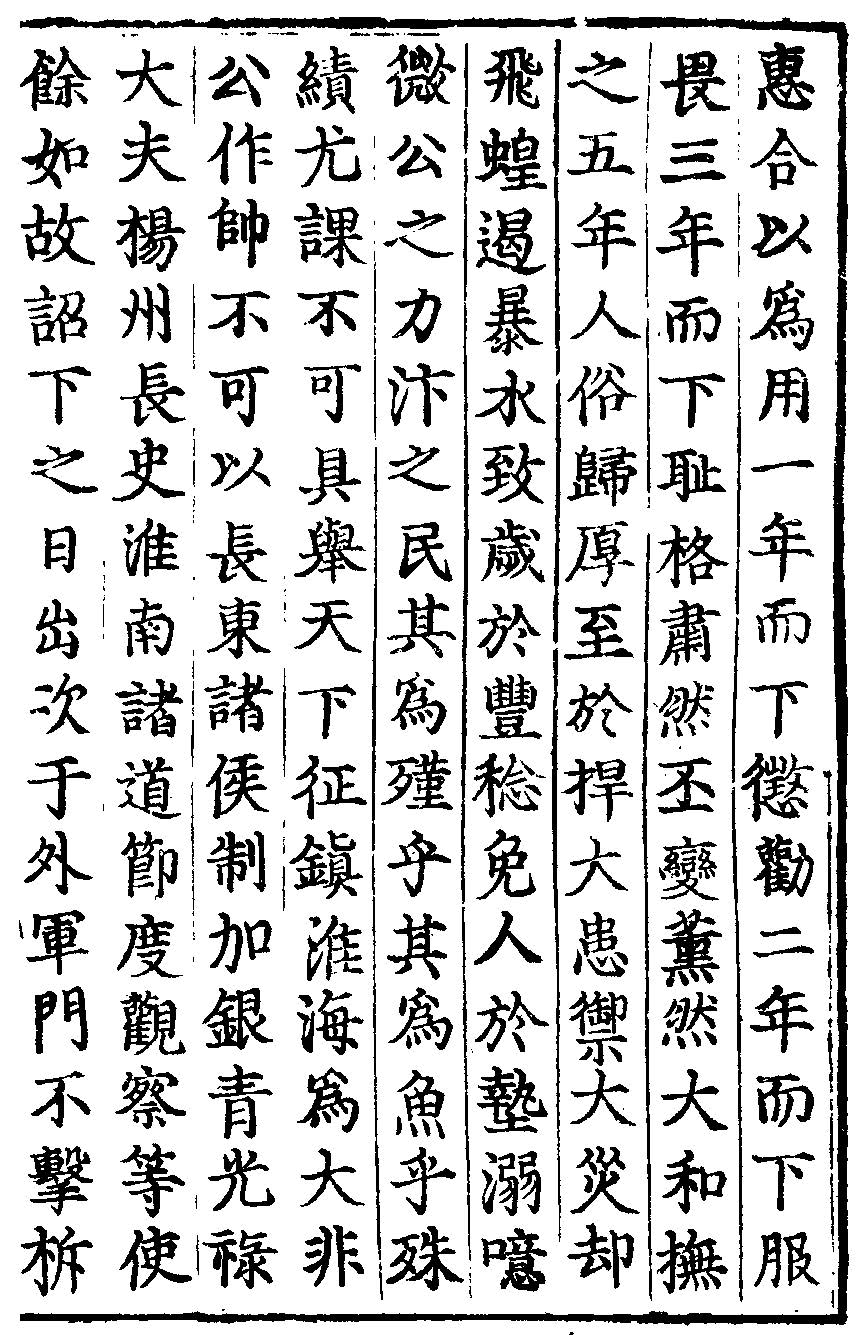 惠合以爲用一年而下懲勸二年而下服
畏三年而下耻格肅然丕變薰然大和撫
之五年人俗歸厚至於捍大患禦大災却
飛蝗遏暴水致歲於豐稔免人於墊溺噫
微公之力汴之民其爲殣乎其爲魚乎殊
績尤課不可具舉天下征鎭淮海爲大非
公作帥不可以長東諸侯制加銀青光祿
大夫楊州長史淮南諸道節度觀察等使
餘如故詔下之日出次于外軍門不擊柝